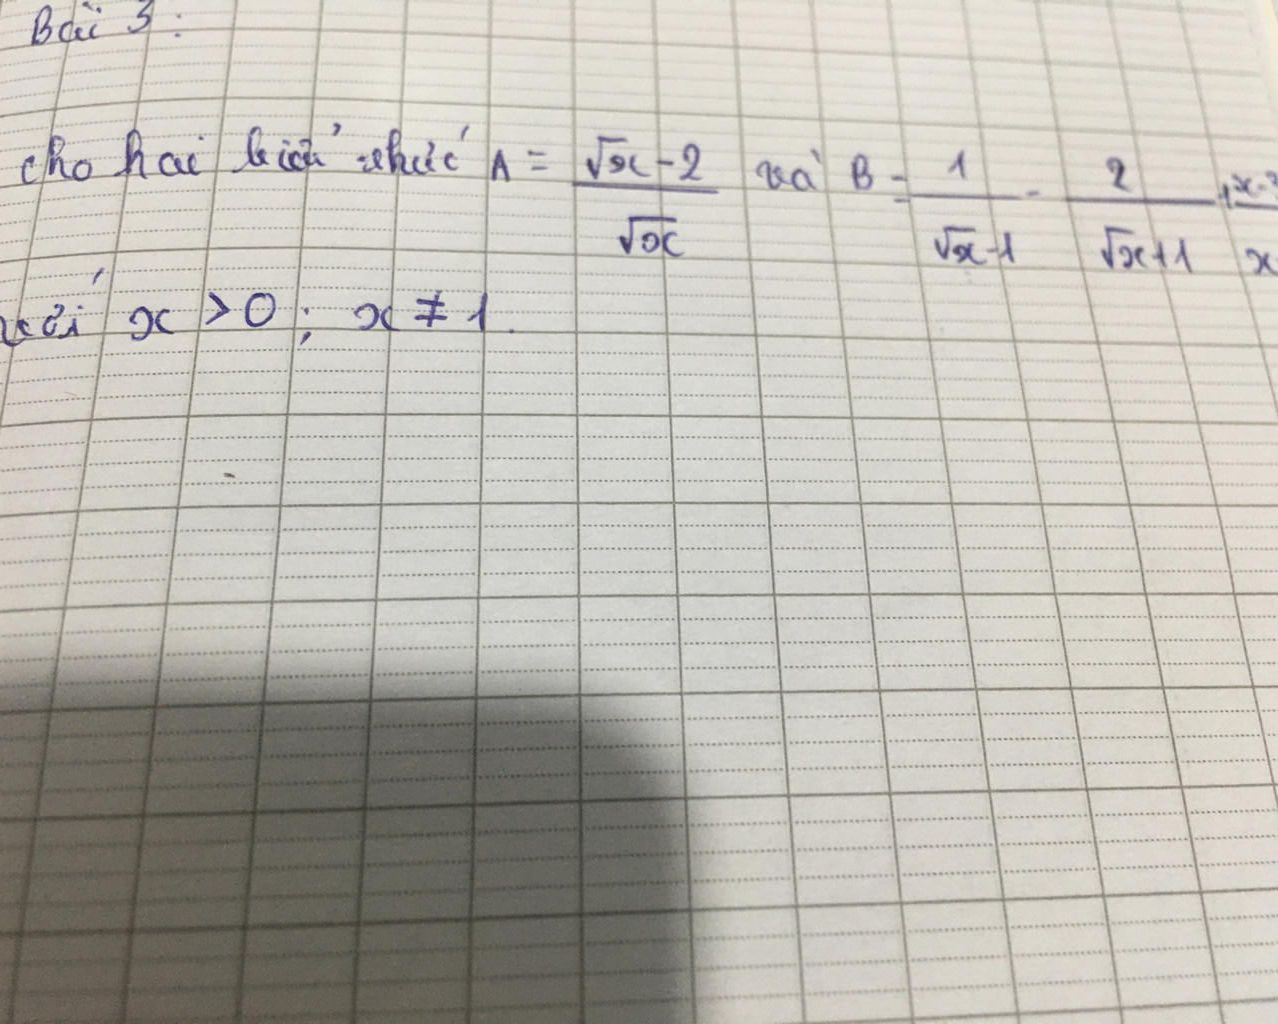 Bài 3:
cho hai biểu thức A = (√x - 2)/√x và B = 1/(√x - 1) - 2/(√x + 1) +
với x > 0; x ≠ 1.